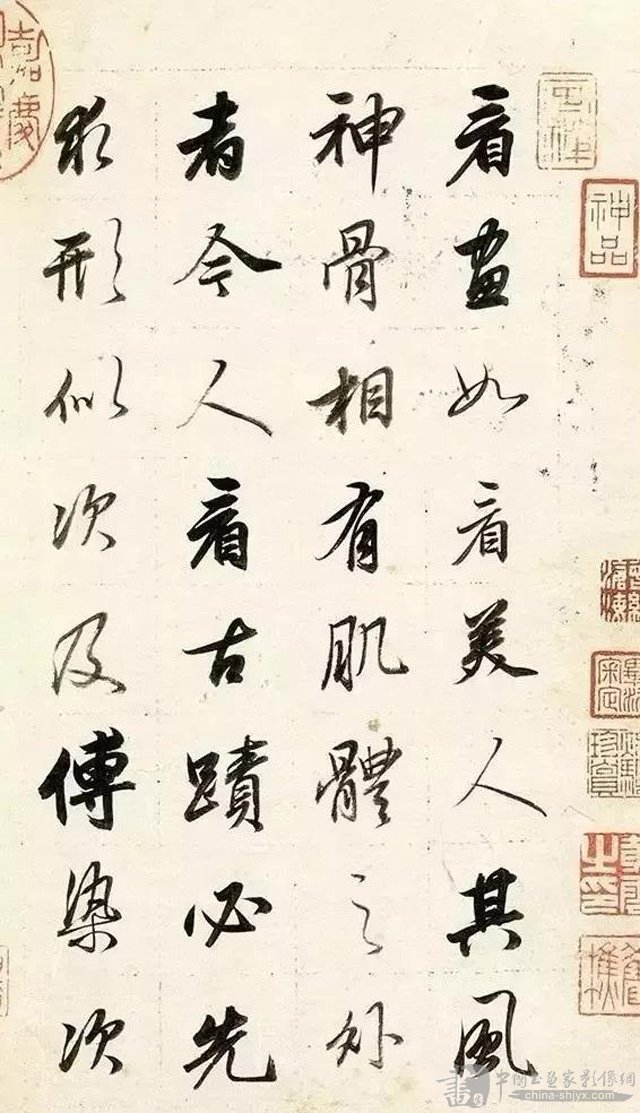 看畫如看美人其風
神骨相有肌體之外
者今人看古蹟必先
求形似次及傅染次
神品
中国书画家影像網
china-shjyx.com